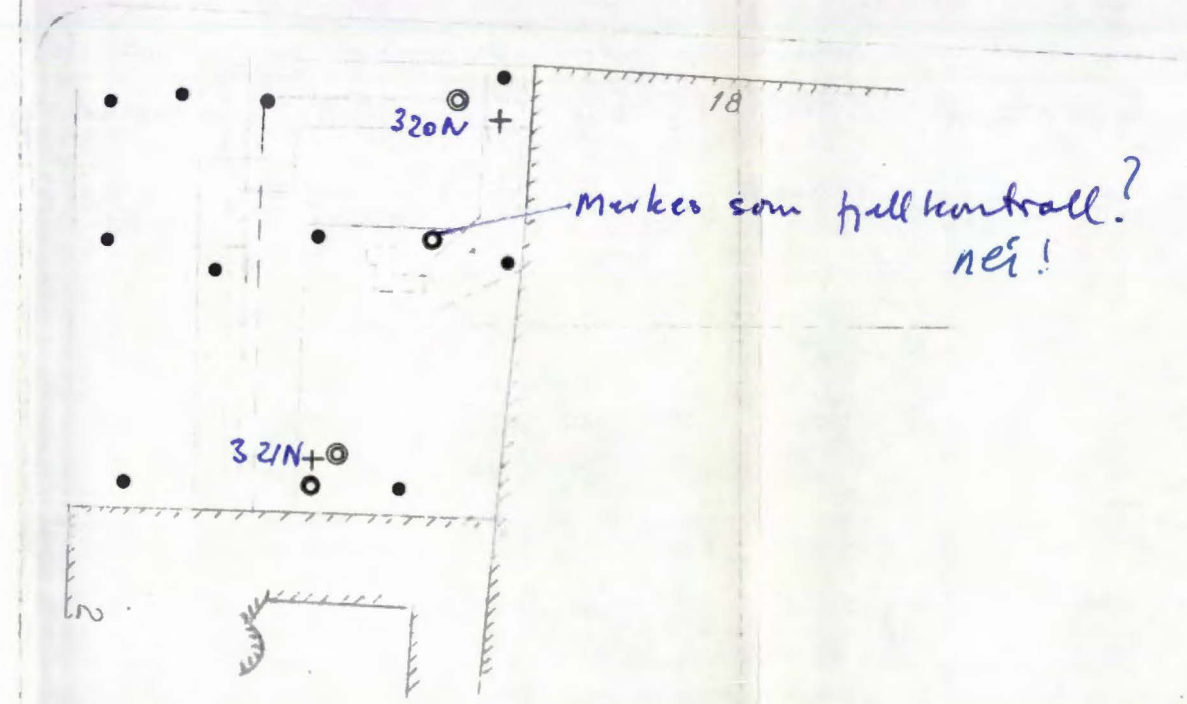 320N
18
Merkes som fjellkontroll?
nei!
321N
2